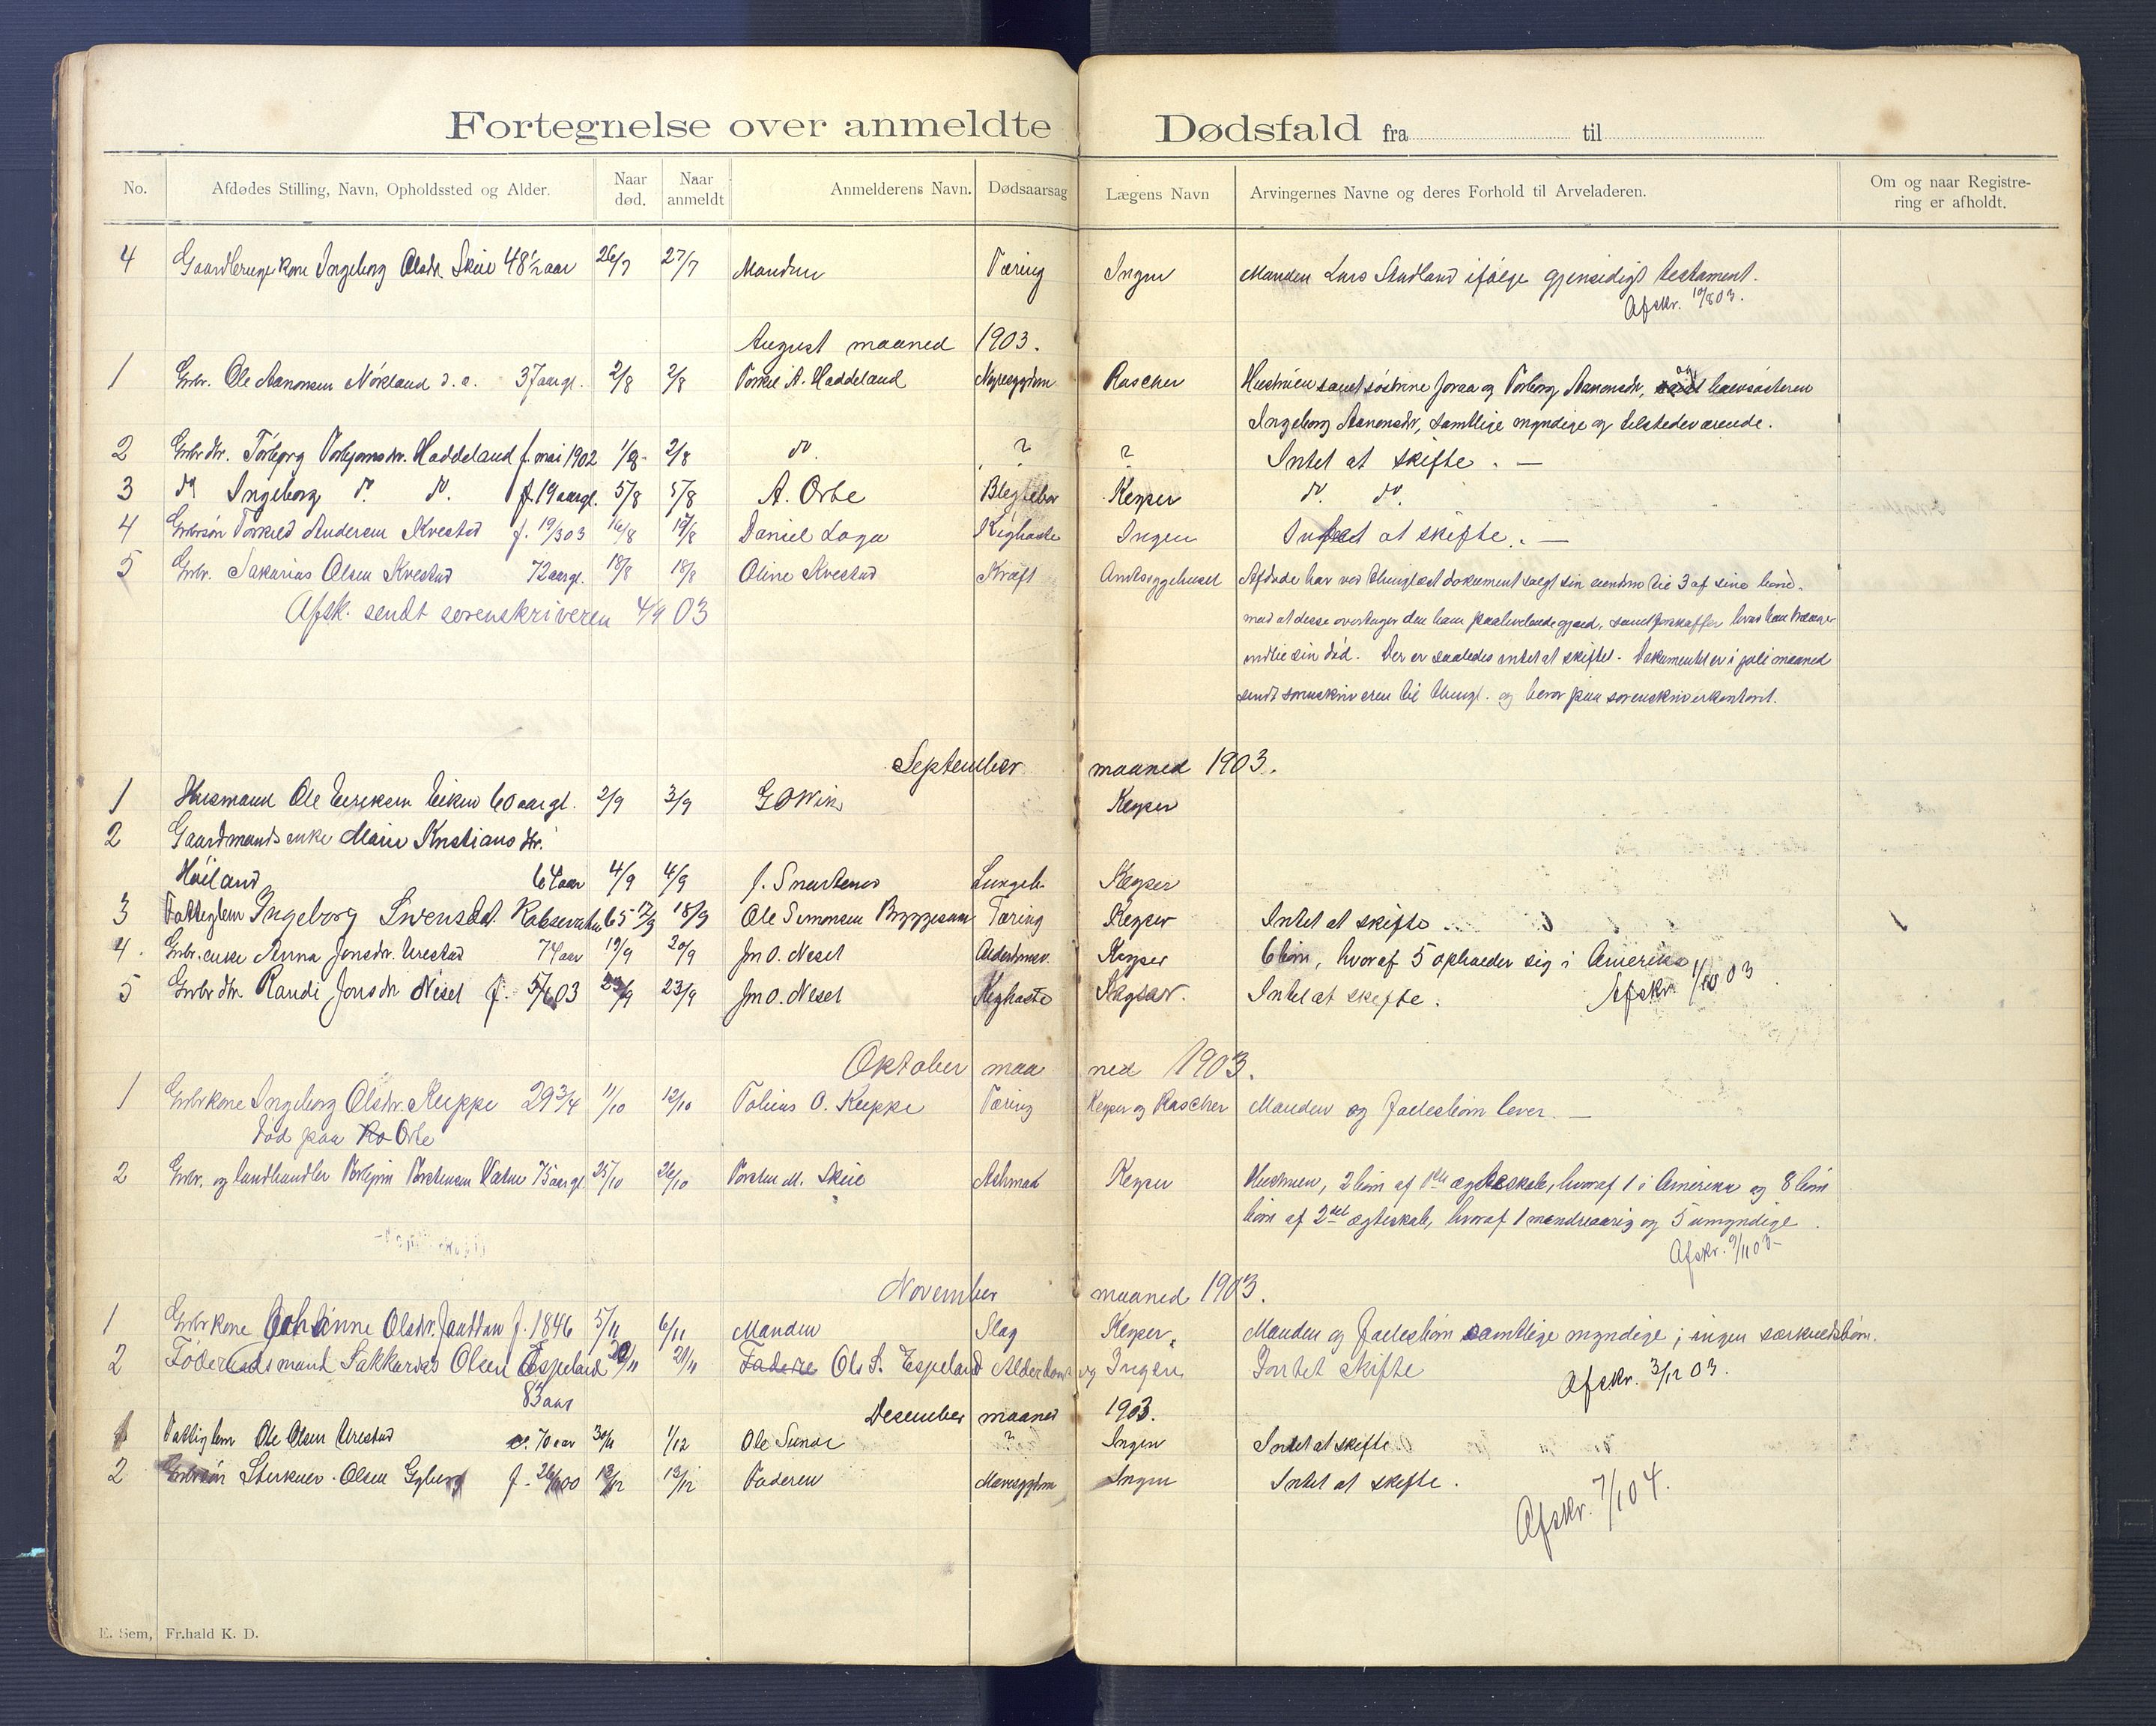 Fortegnelse over anmeldte Dødsfald fra til
No. Afdødes Stilling, Navn, Opholdssted og Alder. Naar død. Naar anmeldt Anmelderens Navn. Dødsaarsag Lægens Navn Arvingernes Navne og deres Forhold til Arveladeren. Om og naar Registrering er afholdt.
4 Gaardbruger kone Ingeborg Olsdr. Skeie 48½ aar 26/7 27/7 Manden Tæring Ingen Manden Lars Stadland ifølge gjensidigt testament.
Afskr. 10/8 03.
August maaned 1903.
1 Grbr. Ole Aanonsen Nørland d. a. 37 aar gl. 2/8 2/8 Torkel A. Haddeland Nyresygdom Rascher Hustruen samt søstrene Joraa og Torborg Aanonsdr, og halvsøsteren
Ingeborg Aanonsdr, samtlige myndige og tilstedeværende.
2 Grbr dtr. Torborg Torbjørnsdtr. Haddeland f. mai 1902 1/8 2/8 do. ? ? Intet at skifte. —
3 do Ingeborg do. do. 19 aar gl. 5/8 5/8 A. Orbe Blegsot Keyser do. do.
4 Grbrsøn Torkild Andersen Kvestad f. 19/3 03 16/8 17/8 Daniel Laga Kighoste Ingen Intet at skifte. —
5 Grbr. Sakarias Olsen Kvestad 72 aar gl. 18/8 18/8 Oline Kvestad Kræft Amtssygehuset Afdøde har ved thinglæst dokument solgt sin eiendom til 3 af sine børn,
mod at disse overtager den ham paahvilende gjæld, samt forskaffer hvad han trænger
indtil sin død. Der er saaledes intet at skifte. Dokumentet er i juli maaned
sendt sorenskriveren til thingl. og beror paa sorenskriverkontoret.
Afsk. sendt sorenskriveren 4/9 03
September maaned 1903.
1 Husmand Ole Eriksen Eiken 60 aar gl. 2/9 3/9 G O Wiik Keyser
2 Gaardmands enke Marie Kristians dtr.
Høiland 64 aar 4/9 4/9 J. Snartemo Lungeb. Keyser
3 Fattiglem Ingeborg Svensdat. 65 17/9 18/9 Ole Simonsen Tæring Keyser Intet at skifte
4 Grbr. enke Anna Jonsdr. Urestad 74 aar 19/9 20/9 Jon O. Neset Alderdomssv. Keyser 6 børn, hvoraf 5 opholder sig i Amerika
5 Grbr dtr. Randi Jonsdr Neset f. 5/6 03 23/9 23/9 Jon O. Neset Kighoste Keyser. Intet at skifte. Afskr. 1/10 03
Oktober maaned 1903.
1 Grbr kone Ingeborg Olsdr. Kuppe 29 3/4 11/10 12/10 Tobias O. Kuppe Tæring Keyser og Rascher Manden og fællesbørn lever. —
Død paa Orbe
2 Grbr. og landhandler Torbjørn Torstensen Vatne 75 aar gl. 25/10 26/10 Torsten M. Skeie Asthmad Keyser Hustruen, 2 børn af 1ste ægteskab, hvoraf 1 i Amerika og 8 børn
børn af 2det ægteskab, hvoraf 1 mindreaarig og 5 umyndige.
Afskr. 9/11 03
November maaned 1903.
1 Grbr kone Johanne Olsdr. f. 1846 5/11 6/11 Manden Slag Keyser. Manden og fællesbørn samtlige myndige; ingen særkuldsbørn.
2 Føderaadsmand Sakkarias Olsen Espeland 20/11 21/11 Faderen Ole S. Espeland Alderdom Ingen Intet skifte
83 aar Afskr. 3/12 03.
Desember maaned 1903.
1 Fattiglem Ole Olsen Urestad 70 aar 30/11 1/12 Ole Sunde ? Ingen Intet at skifte
2 Grbrsøn Sterkner Olsen Gyberg f. 12/12 13/12 Faderen Mavesygdom Ingen Intet at skifte.
Afskr. 7/1 04.
E. Sem, Fr.hald K. D.